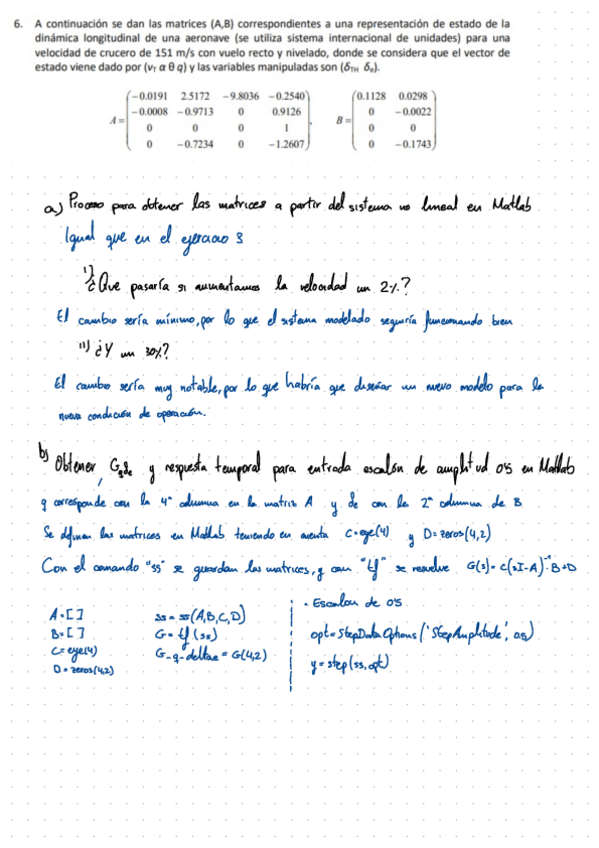 6. A continuación se dan las matrices (A,B) correspondientes a una representación de estado de la
dinámica longitudinal de una aeronave (se utiliza sistema internacional de unidades) para una
velocidad de crucero de 151 m/s con vuelo recto y nivelado, donde se considera que el vector de
estado viene dado por (vT α θ q) y las variables manipuladas son (δTH δe).
A = (−0.0191 2.5172 −9.8036 −0.2540
−0.0008 −0.9713 0 0.9126
0 0 0 1
0 −0.7234 0 −1.2607),
B = (0.1128 0.0298
0 −0.0022
0 0
0 −0.1743)
a) Proceso para obtener las matrices a partir del sistema no lineal en Matlab
Igual que en el ejercicio 3
i) ¿Que pasaría si aumentamos la velocidad un 2%?
El cambio sería mínimo, por lo que el sistema modelado seguiría funcionando bien
ii) ¿Y un 30%?
El cambio sería muy notable, por lo que habría que diseñar un nuevo modelo para la
nueva condición de operación.
b) Obtener Gqδe y respuesta temporal para entrada escalón de amplitud 0'5 en Matlab
q corresponde con la 4ª columna en la matriz A y δe con la 2ª columna de B
Se definen las matrices en Matlab teniendo en cuenta C=eye(4) y D=zeros(4,2)
Con el comando "ss" se guardan las matrices, y con "tf" se resuelve G(s)=C(sI-A)⁻¹B+D
A=[ ] ss=ss(A,B,C,D)
B=[ ] G=tf(ss)
C=eye(4) G_q_deltae=G(4,2)
D=zeros(4,2)
· Escalon de 0'5
opt=StepDataOptions('StepAmplitude', 0,5)
y=step(ss,opt)